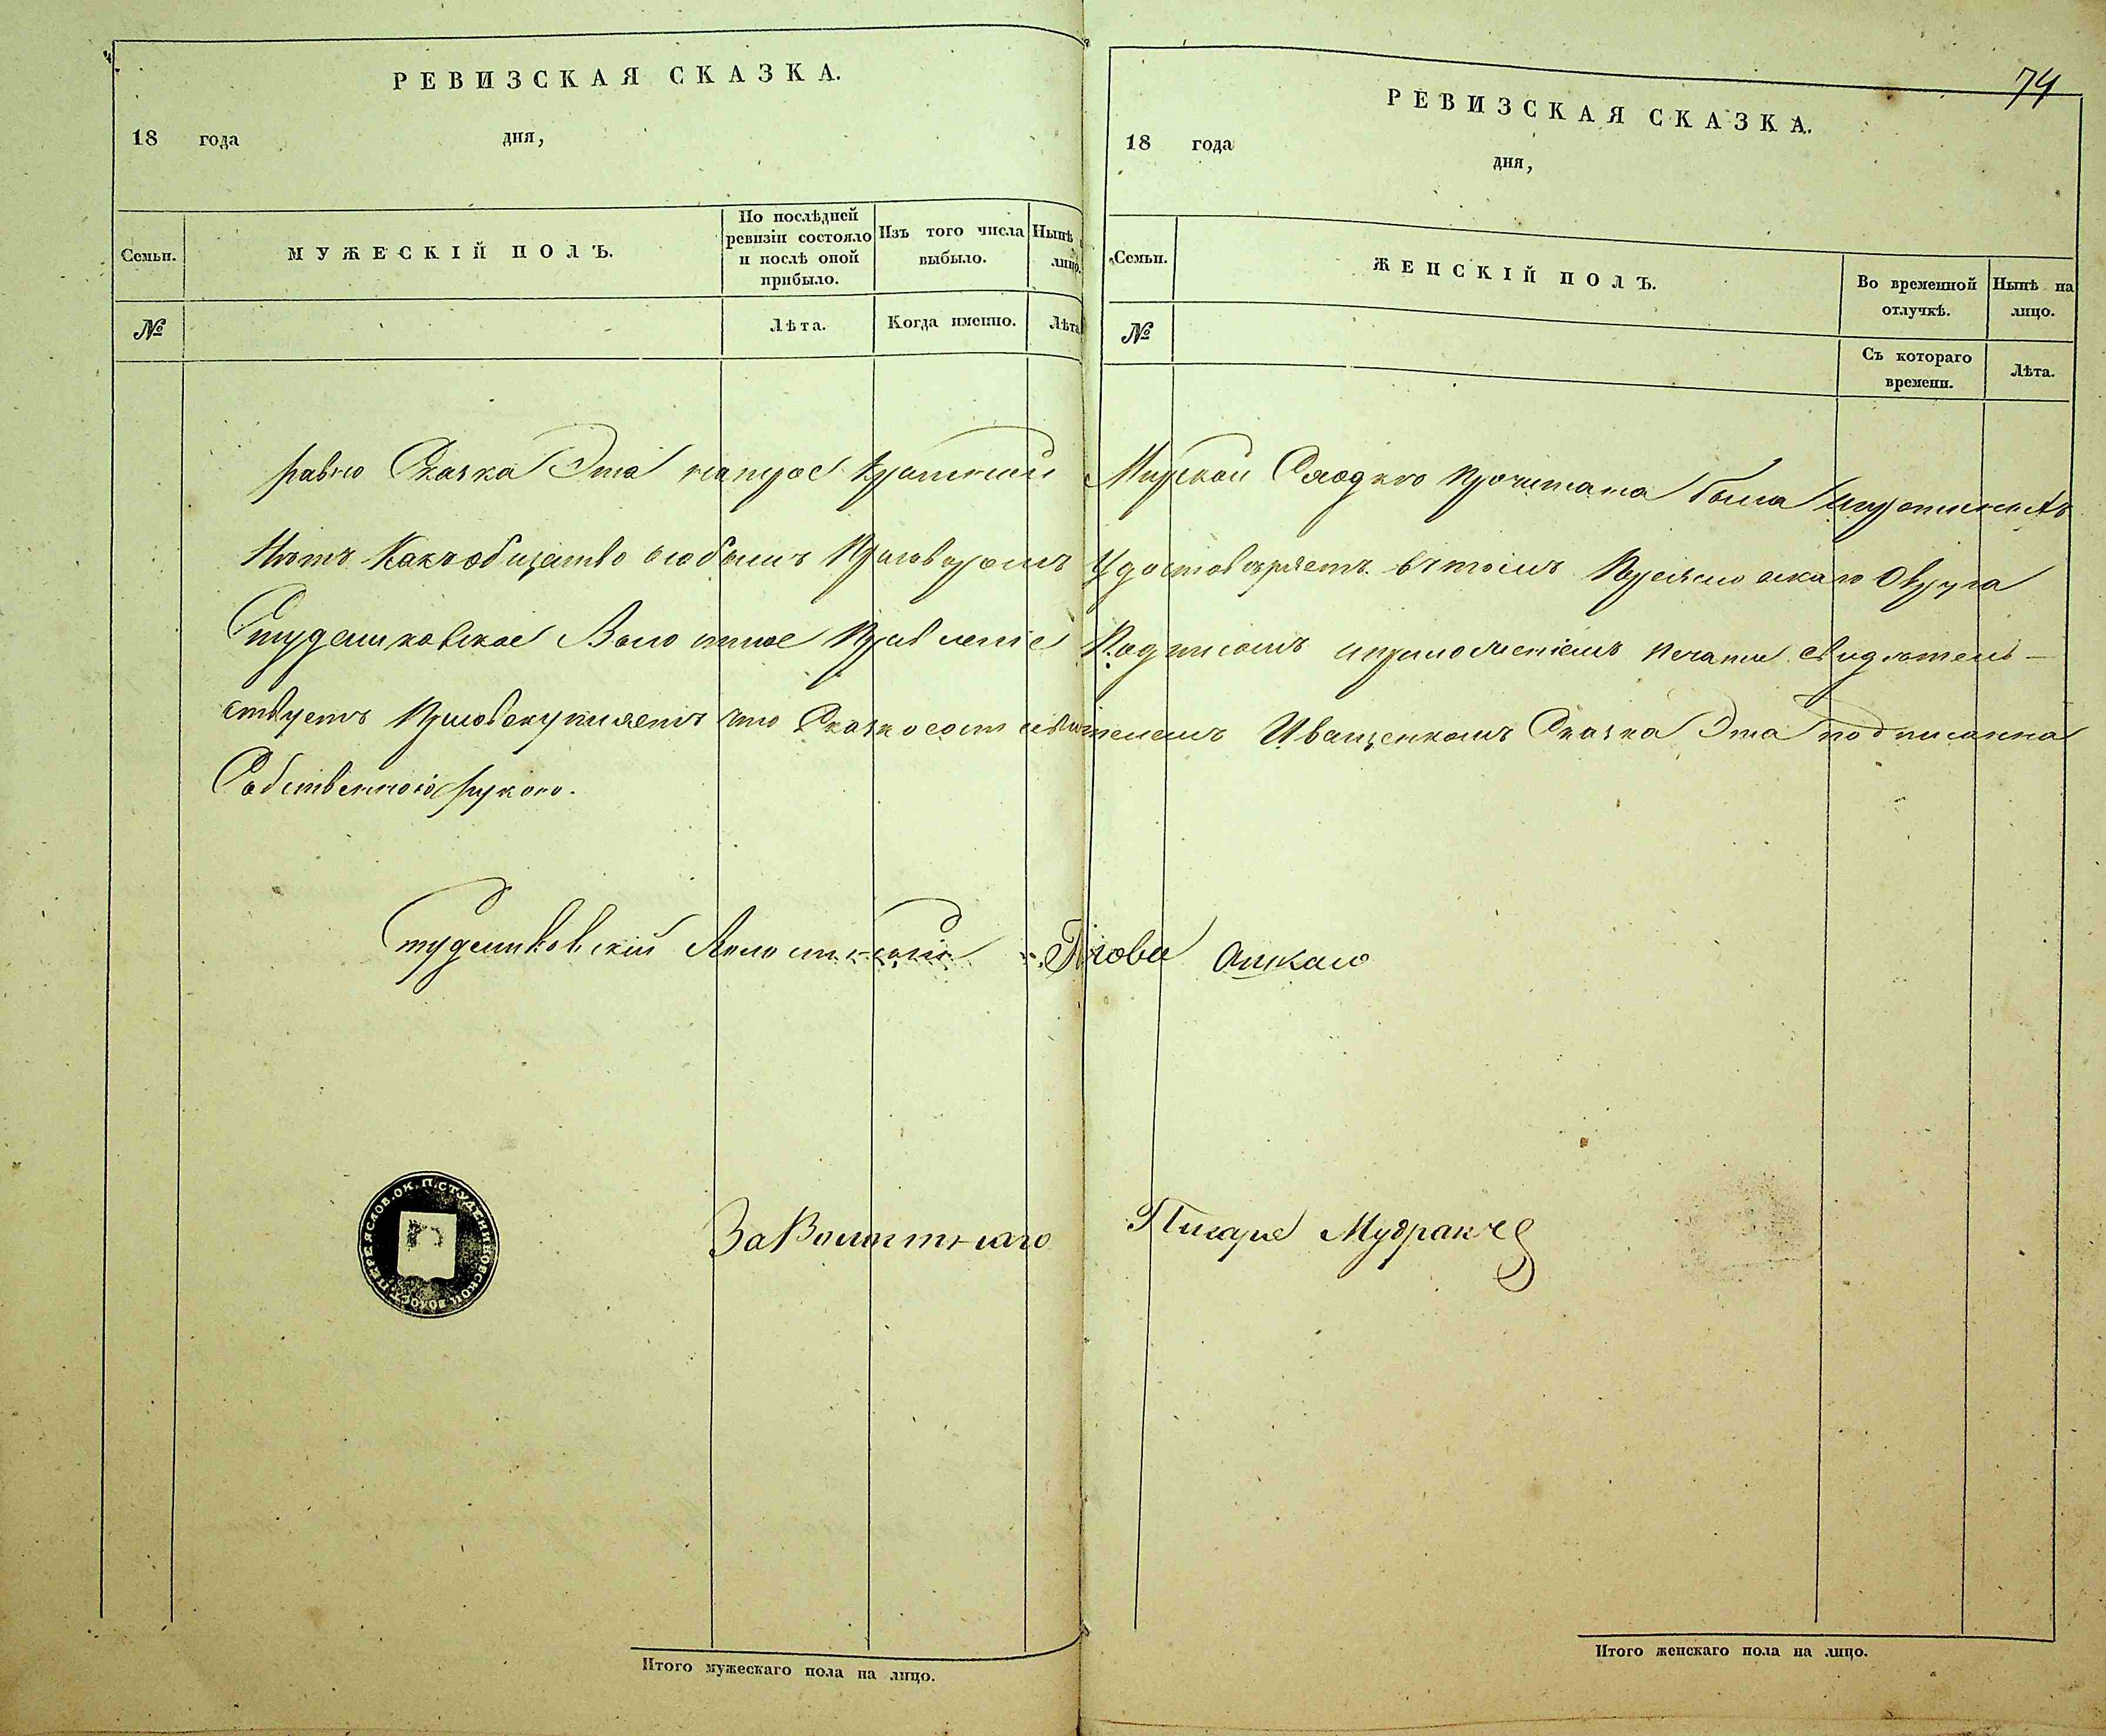 74
РЕВИЗСКАЯ СКАЗКА.
18 года дня,
Семьи.
МУЖЕСКІЙ ПОЛЪ.
По послѣдней ревизіи состояло и послѣ оной прибыло.
Изъ того числа выбыло.
Нынѣ лицо.
№
Лѣта.
Когда именно.
Лѣта
РЕВИЗСКАЯ СКАЗКА.
18 года дня,
Семьи.
ЖЕНСКІЙ ПОЛЪ.
Во временной отлучкѣ.
Нынѣ на лицо.
№
Съ котораго времени.
Лѣта.
равно Сказка Эта Мирской Сходкѣ Прочитана была
Нѣтъ Какъ общество особымъ Приговоромъ Удостовѣряетъ. въ томъ Переясловскаго Округа
Студениковское Волостное Правленіе Подписомъ и приложеніемъ Печати свидѣтель–
ствуетъ Присовокупляетъ что Сказкосоставителемъ Иващенкомъ Сказка Эта подписанна
Собственною рукою.
Студениковскій Волостной Голова
За Волостнаго Писаря
ПЕРЕЯСЛОВ. ОК. П. СТУДЕНИКОВСКОЙ ВОЛОСТ.
Итого мужескаго пола на лицо.
Итого женскаго пола на лицо.